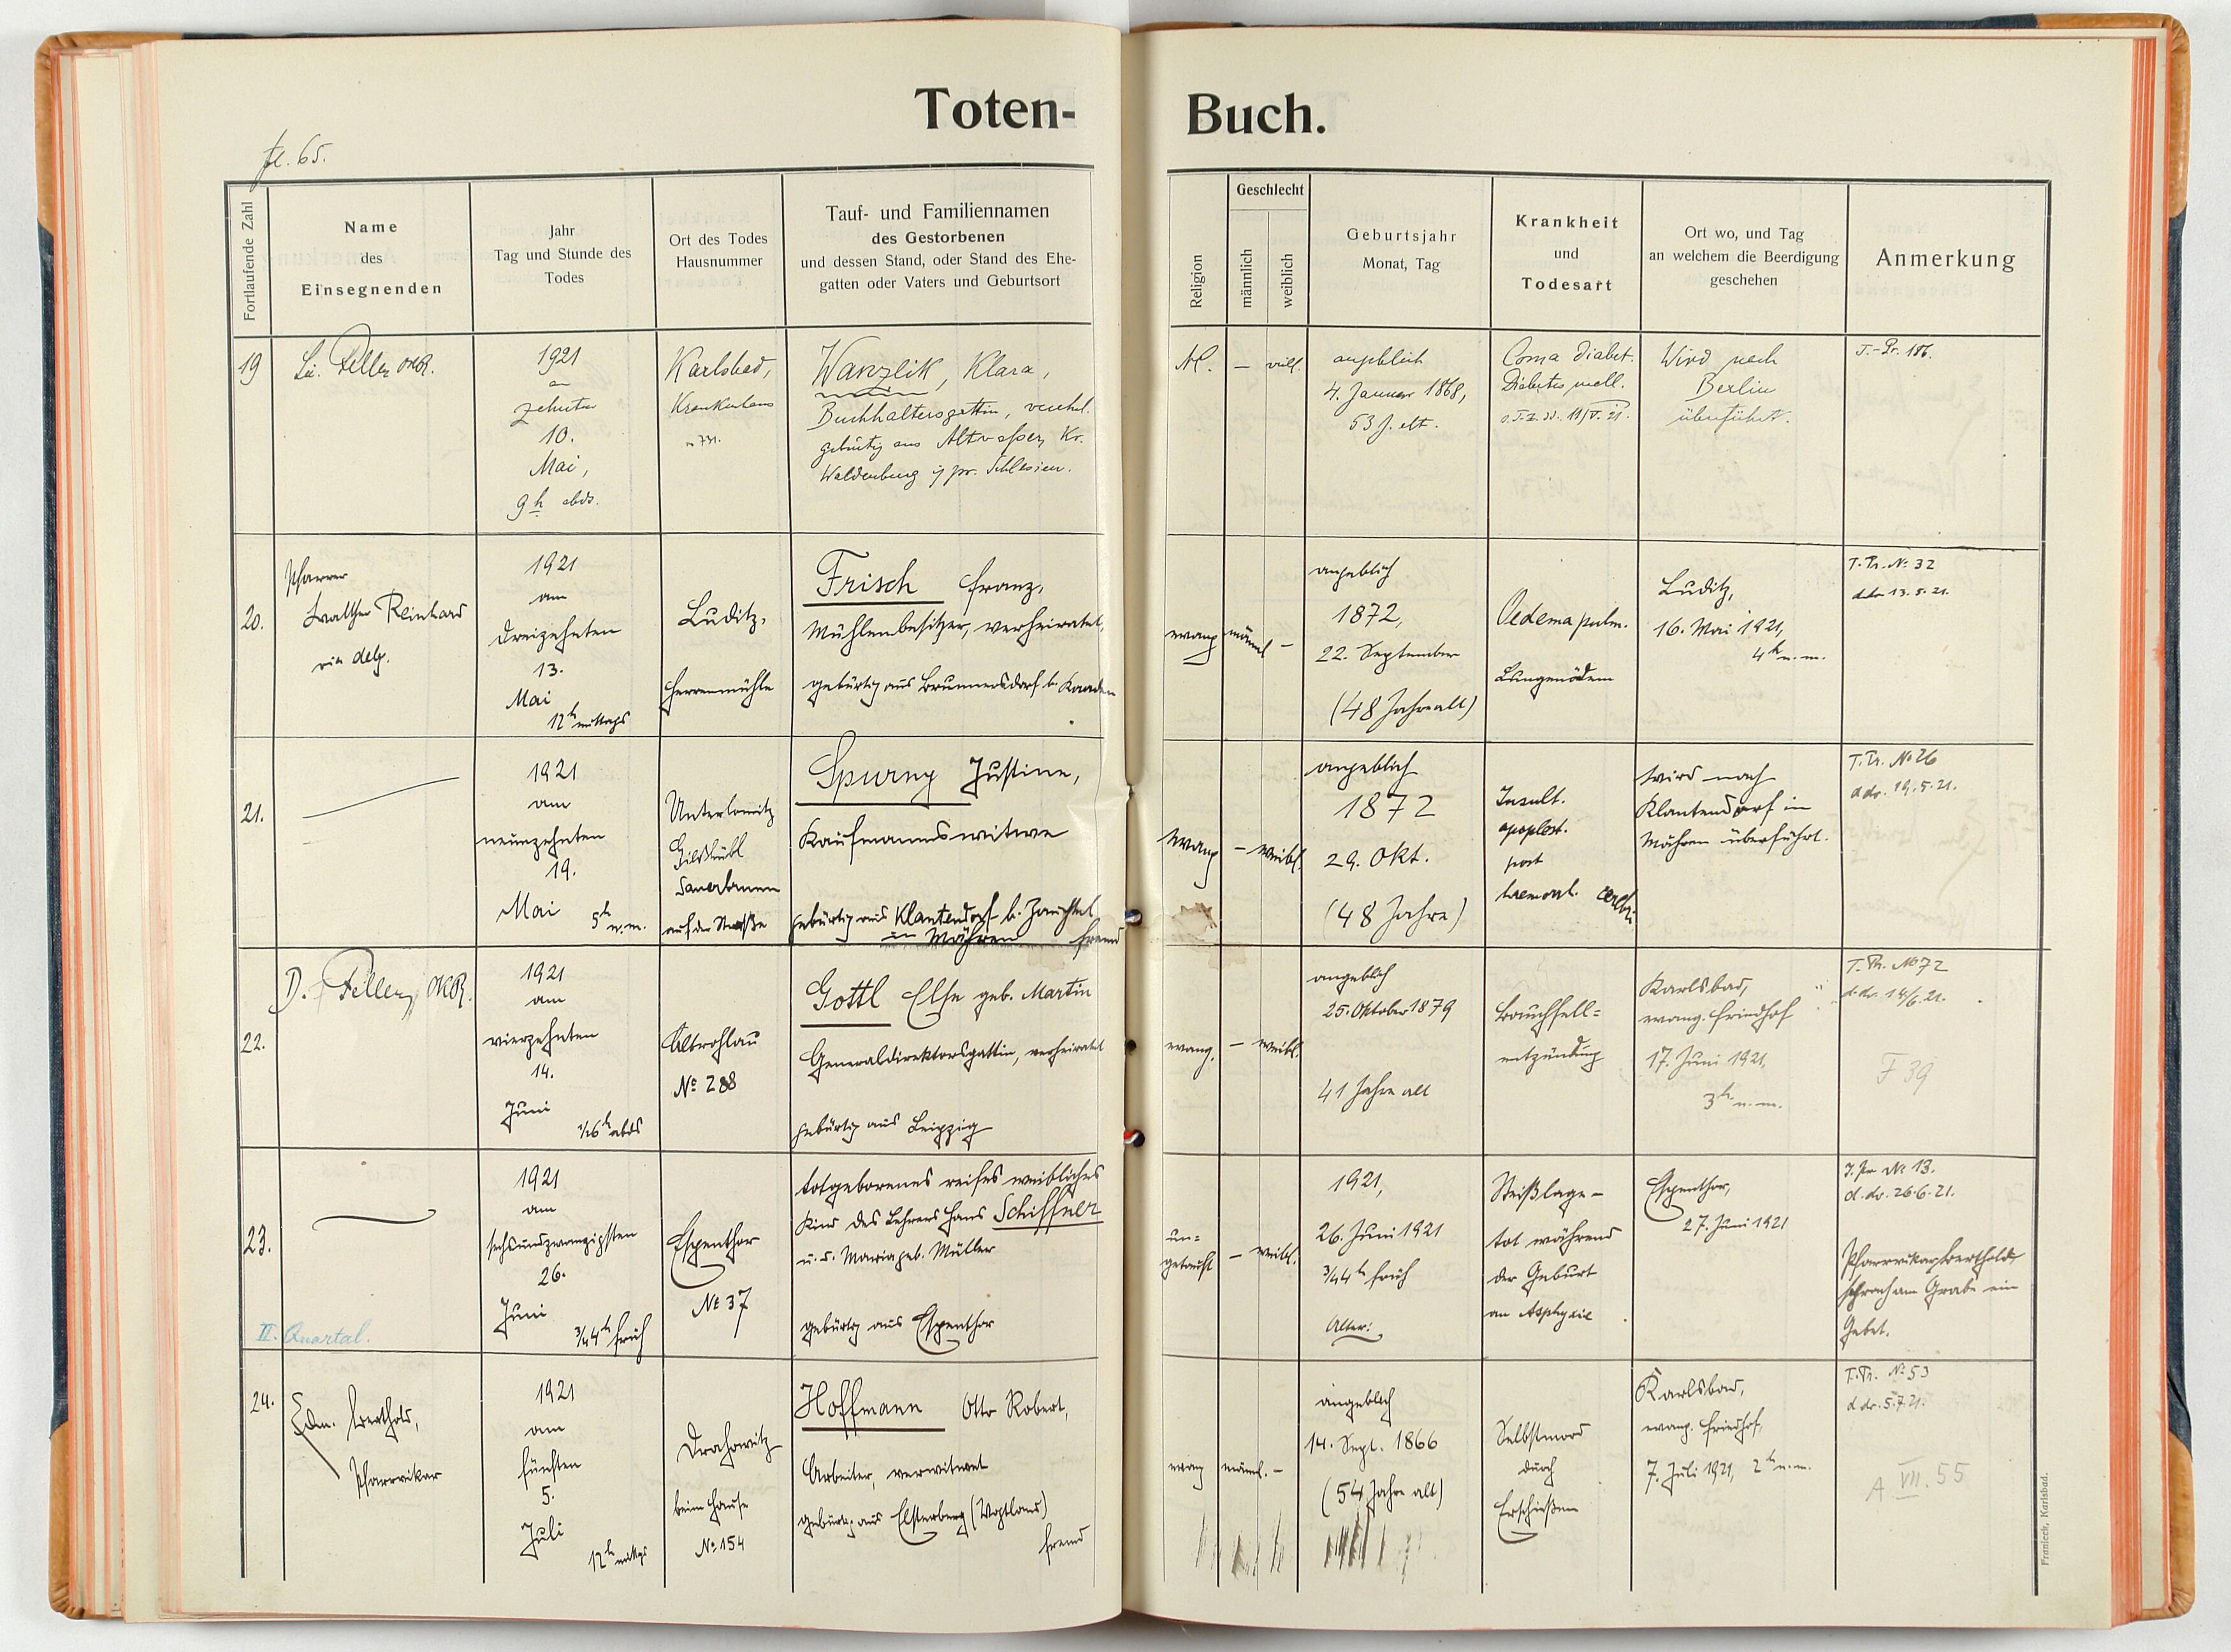 Toten-
Buch.
fl. 65.
Fortlaufende Zahl
Name
des
Einsegnenden
Jahr
Tag und Stunde des
Todes
Ort des Todes
Hausnummer
Tauf- und Familiennamen
des Gestorbenen
und dessen Stand, oder Stand des Ehe-
gatten oder Vaters und Geburtsort
Religion
Geschlecht
männlich
weiblich
Geburtsjahr
Monat, Tag
Krankheit
und
Todesart
Ort wo, und Tag
an welchem die Beerdigung
geschehen
Anmerkung
19
Feller OKR.
1921
am
zehnten
10.
Mai,
9 h abds.
Karlsbad,
Krankenhaus
n 731.
Wanzlik, Klara,
Buchhaltersgattin, verehel.
gebürtig aus Altwasser, Kr.
Waldenburg i/ pr. Schlesien.
—
angeblich
4. Januar 1868,
53 J. alt.
Coma diabet.
Diabetes mell.
Wird nach
Berlin
überführt.
T.-Pr. 186.
20.
Pfarrer
Walther Reinhard
via deleg.
1921
am
dreizehnten
13.
Mai
12 h mittags
Luditz,
Herrenmühle
Frisch Franz,
Mühlenbesitzer, verheiratet,
gebürtig aus Brunnersdorf b. Kaaden
evang
männl
—
angeblich
1872,
22. September
(48 Jahre alt)
Oedema pulm.
Lungenödem
Luditz,
16. Mai 1921,
4 h n.m.
T. Pr. No 32
d do 13.5.21.
21.
1921
am
neunzehnten
19.
Mai 5 h n.m.
Unterlomitz
Gießhübl
Sauerbrunn
auf der Straße
Spurny Justine,
Kaufmannswitwe
gebürtig aus Klantendorf b. Zauchtel
in Mähren fremd
evang
—
weibl.
angeblich
1872
29. Okt.
(48 Jahre)
Insult.
apoplect.
post
haemorrh. cerebri
wird nach
Klantendorf in
Mähren überführt.
T. Pr. No 26
d do. 19.5.21.
22.
D. Feller, OKR.
1921
am
vierzehnten
14.
Juni
1/26 h abds
Altrohlau
No 288
Gottl Else geb. Martin
Generaldirektorsgattin, verheiratet
gebürtig aus Leipzig
evang.
—
weibl.
angeblich
25. Oktober 1879
41 Jahre alt
Bauchfell=
entzündung
Karlsbad,
evang. Friedhof
17. Juni 1921,
3 h n.m.
T. Pr. No 72
d. do. 14/6.21.
F 39
23.
II. Quartal.
1921
am
sechsundzwanzigsten
26.
Juni
3/44 h früh
Espenthor
No 37
totgeborenes reifes weibliches
Kind des Lehrers Hans Schiffner
u. d. Maria geb. Müller
gebürtig aus Espenthor
un=
getauft
—
weibl.
1921,
26. Juni 1921
3/44 h früh
Alter:
Steißlage –
tot während
der Geburt
an Asphyxie
Espenthor,
27. Juni 1921
T. Pr No 13.
d. do. 26.6.21.
Pfarrvikar Berthold
sprach am Grabe ein
Gebet.
24.
Edm. Berthold,
Pfarrvikar
1921
am
fünften
5.
Juli
12 h mittgs
Drahowitz
beim Hause
No 154
Hoffmann Otto Robert,
Arbeiter, verwitwet
gebürtig aus Elsterberg (Vogtland)
fremd
evang
männl.
—
angeblich
14. Sept. 1866
(54 Jahre alt)
Selbstmord
durch
Erschießen
Karlsbad,
evang. Friedhof,
7. Juli 1921, 2 h n.m.
T. Pr. No 53
d do. 5.7.21.
A VII. 55
Franieck, Karlsbad.